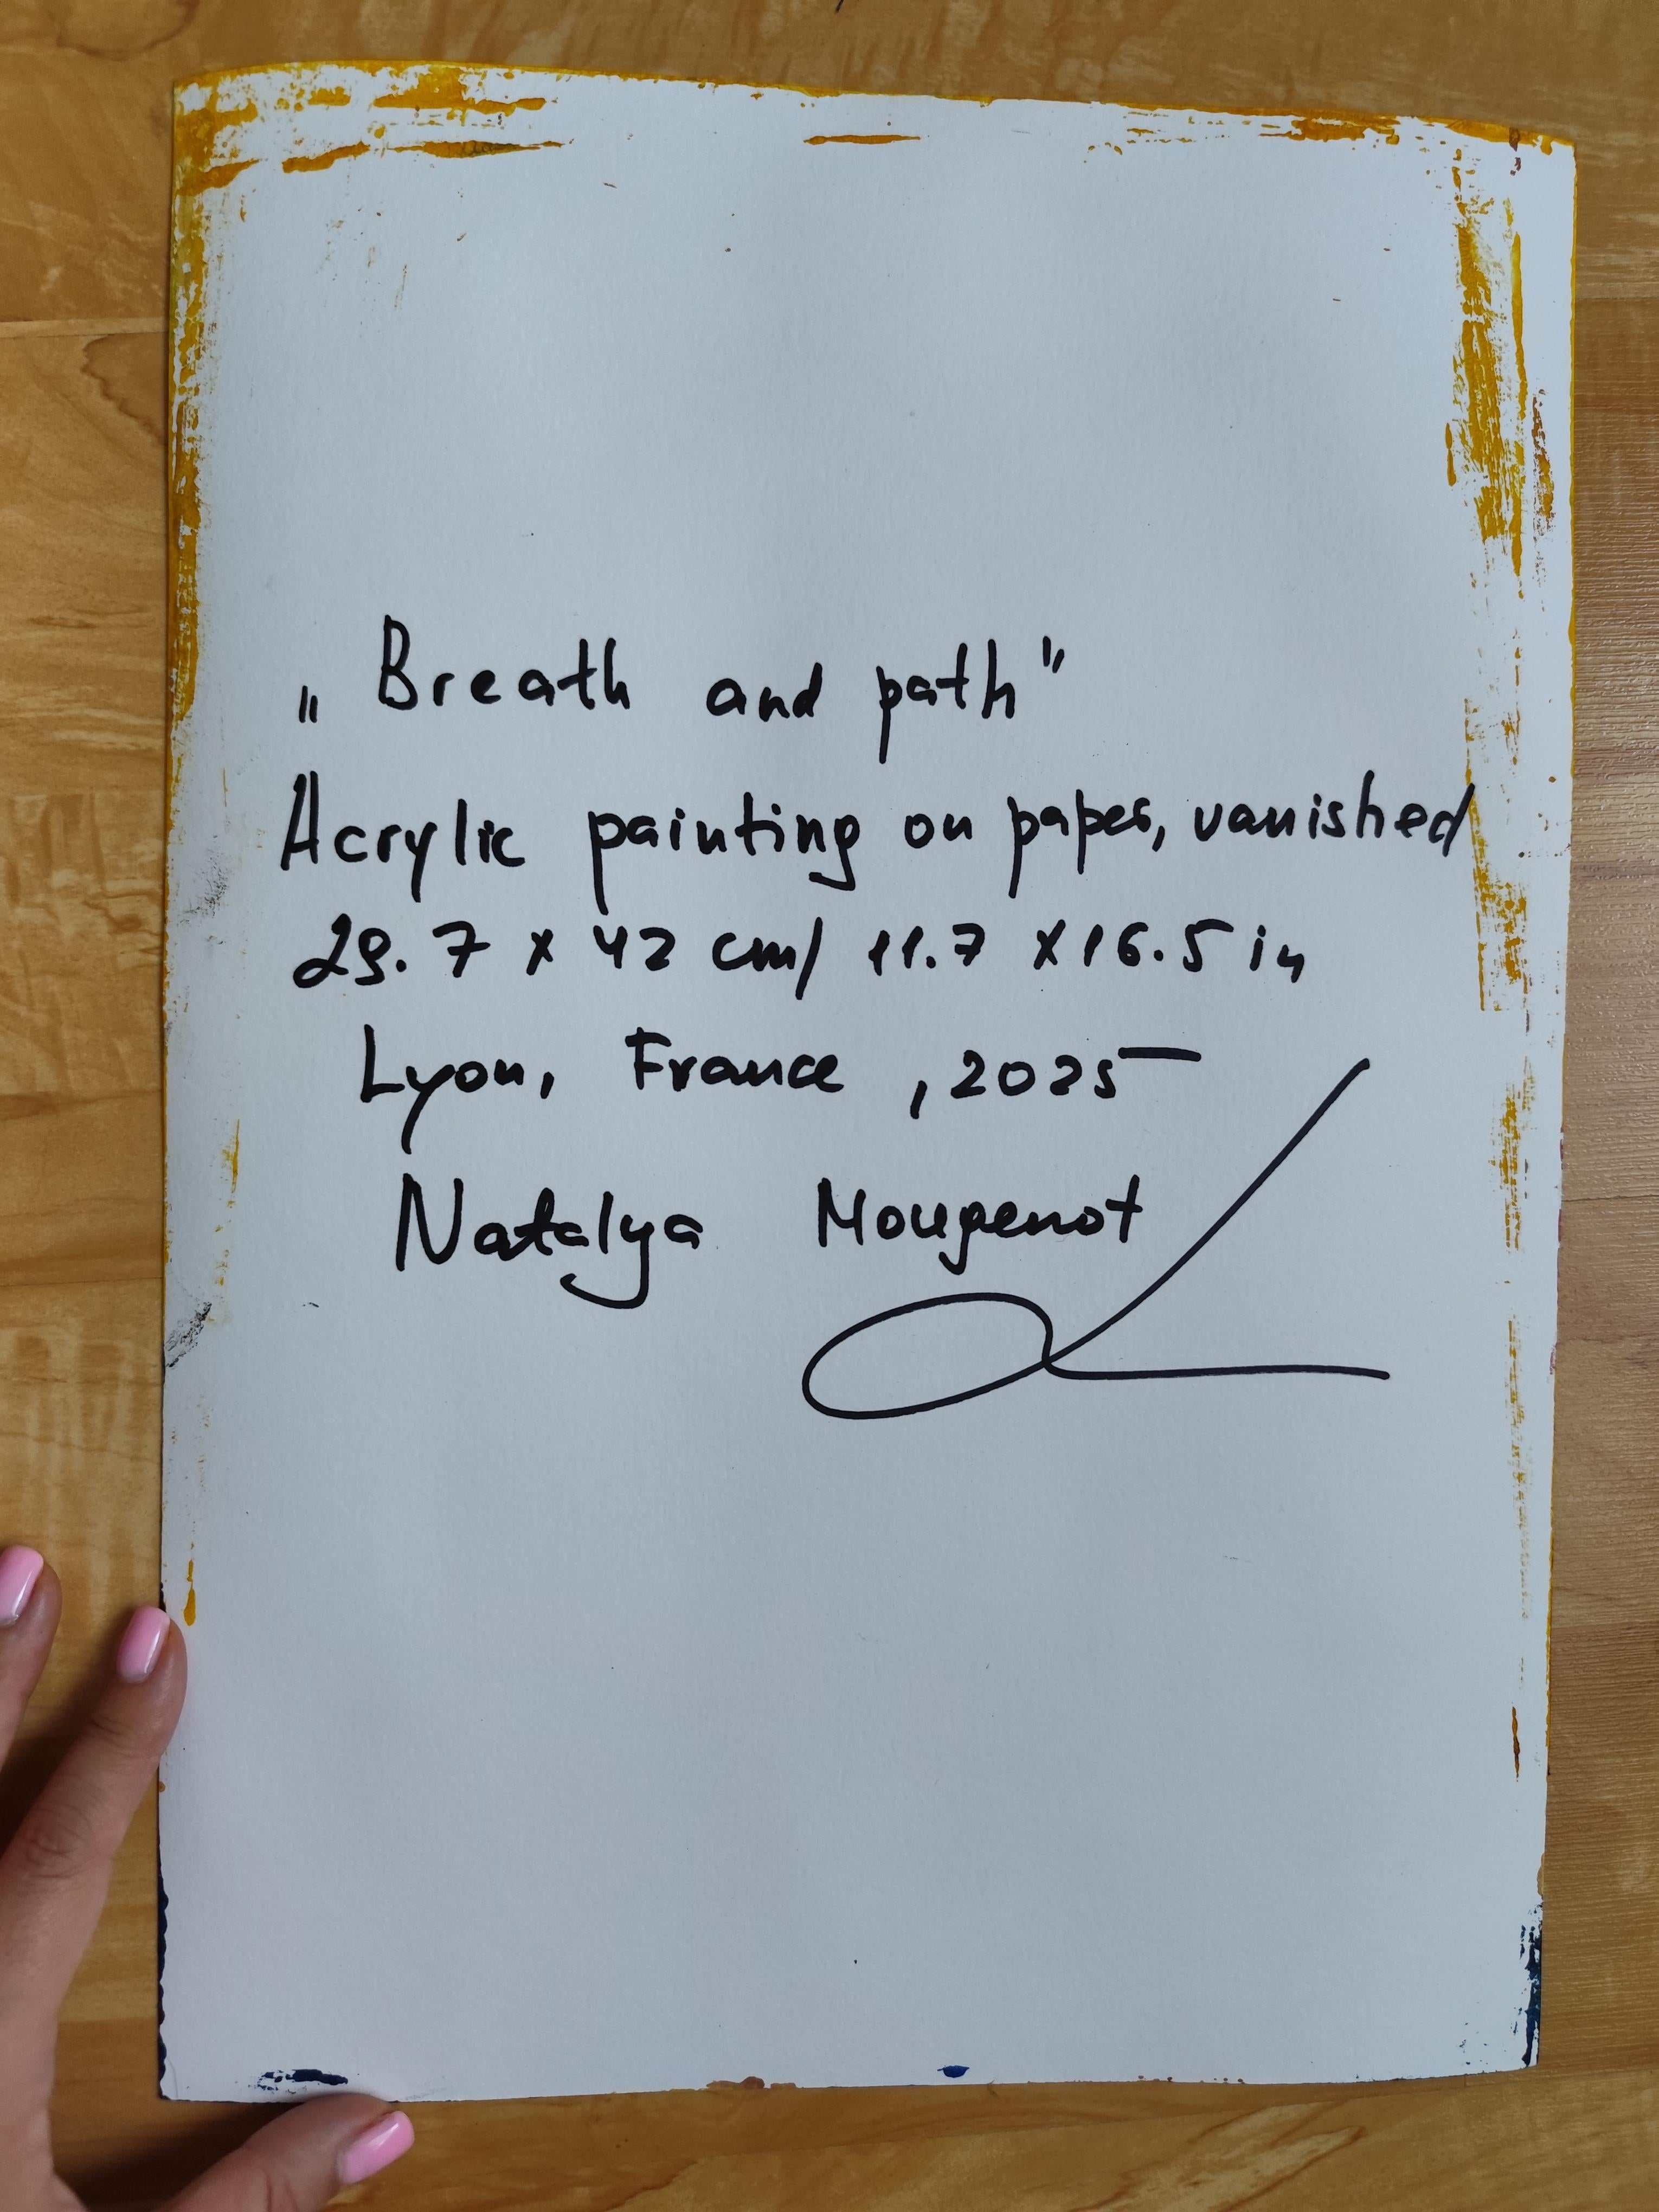 „Breath and path"
Acrylic painting on paper, vanished
29.7 x 42 cm/ 11.7 x 16.5 in
Lyon, France, 2025
Natalya Mougenot